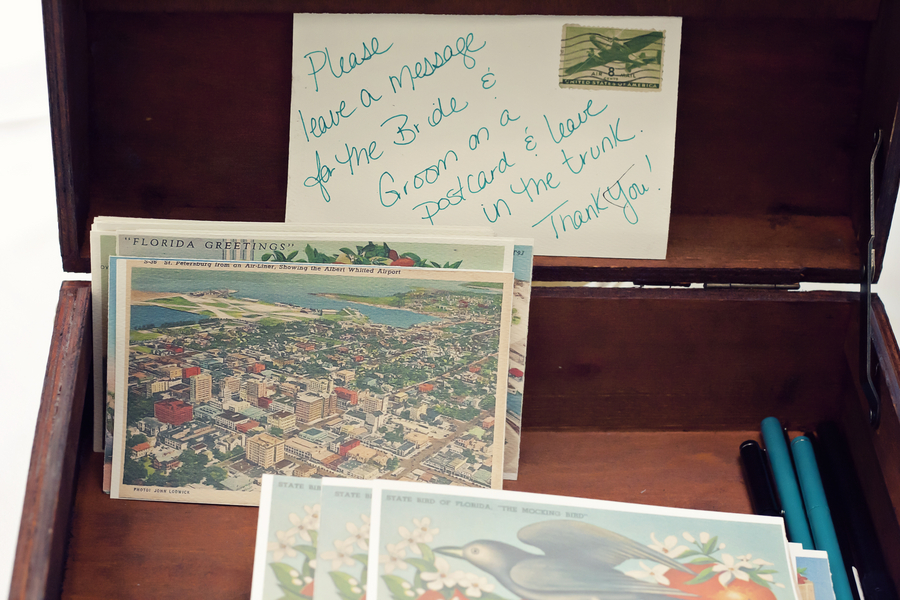 Please
leave a message
for the Bride &
Groom on a
postcard & leave
in the trunk.
Thank You!
AIR 8 MAIL
UNITED STATES OF AMERICA
"FLORIDA GREETINGS"
St. Petersburg from an Air-Liner, Showing the Albert Whitted Airport
PHOTO: JOHN LODWICK
STATE BI
STATE B
STATE BIRD OF FLORIDA, "THE MOCKING BIRD"